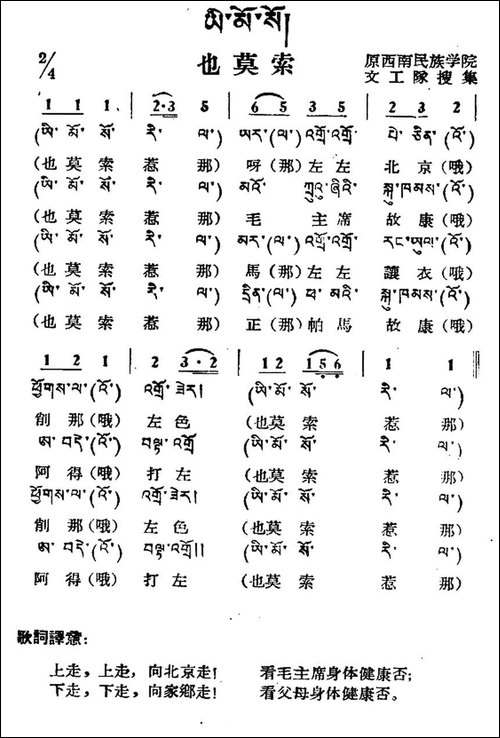 ཡི་མོ་སོ།
也莫索
2/4
原西南民族学院
文工隊搜集
1 1 1 2·3 5 | 6 5 3 5 | 2 3 2
(ཡི་ མོ་ སོ་ རེ་ ལ་) ཡར་(ལ་) འགྲོ་འགྲོ་ པེ་ ཅིན་ (འོ་)
(也莫索 惹 那) 呀(那)左左 北京(哦)
(ཡི་ མོ་ སོ་ རེ་ ལ་) མའོ་ ཀྲུའུ་ ཞིའི་ སྐུ་ཁམས་(འོ་)
(也莫索 惹 那) 毛 主席 故康(哦)
(ཡི་ མོ་ སོ་ རེ་ ལ་) མར་(ལ་) འགྲོ་འགྲོ་ རང་ཡུལ་(འོ་)
(也莫索 惹 那) 馬(那)左左 讓衣(哦)
(ཡི་ མོ་ སོ་ རེ་ ལ་) དྲིན་(ལ་) ཕ་ མའི་ སྐུ་ཁམས་(འོ་)
(也莫索 惹 那) 正(那)帕馬 故康(哦)
1 2 1 | 2 3·2 | 1 2 1 5 6 | 1 1
ཕྱོགས་ལ་(འོ་) འགྲོ་ཟེར། (ཡི་ མོ་ སོ་ རེ་ ལ་)
削那(哦) 左色 (也莫索 惹 那)
ཨ་ བདེ་(འོ་) བལྟ་འགྲོ (ཡི་ མོ་ སོ་ རེ་ ལ་)
阿得(哦) 打左 (也莫索 惹 那)
ཕྱོགས་ལ་(འོ་) འགྲོ་ཟེར། (ཡི་ མོ་ སོ་ རེ་ ལ་)
削那(哦) 左色 (也莫索 惹 那)
ཨ་ བདེ་(འོ་) བལྟ་འགྲོ།། (ཡི་ མོ་ སོ་ རེ་ ལ་)
阿得(哦) 打左 (也莫索 惹 那)
歌詞譯意：
上走，上走，向北京走！ 看毛主席身体健康否；
下走，下走，向家鄉走！ 看父母身体健康否。